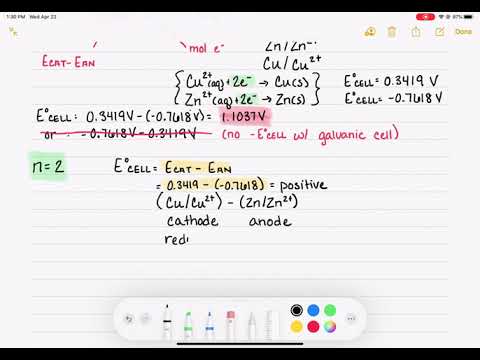 1:30 PM Wed Apr 22
67%
Done
mol e⁻
Zn/Zn²⁺
ECAT-EAN
Cu/Cu²⁺
{ Cu²⁺(aq)+2e⁻ → Cu(s) } E°CELL = 0.3419 V
{ Zn²⁺(aq)+2e⁻ → Zn(s) } E°CELL = -0.7618 V
E°CELL: 0.3419V-(-0.7618V) = 1.1037V
or - 0.7618V - 0.3419V (no -E°CELL w/ galvanic cell)
n=2 E°CELL = ECAT - EAN
= 0.3419 - (-0.7618) = positive
(Cu/Cu²⁺) - (Zn/Zn²⁺)
cathode anode
red